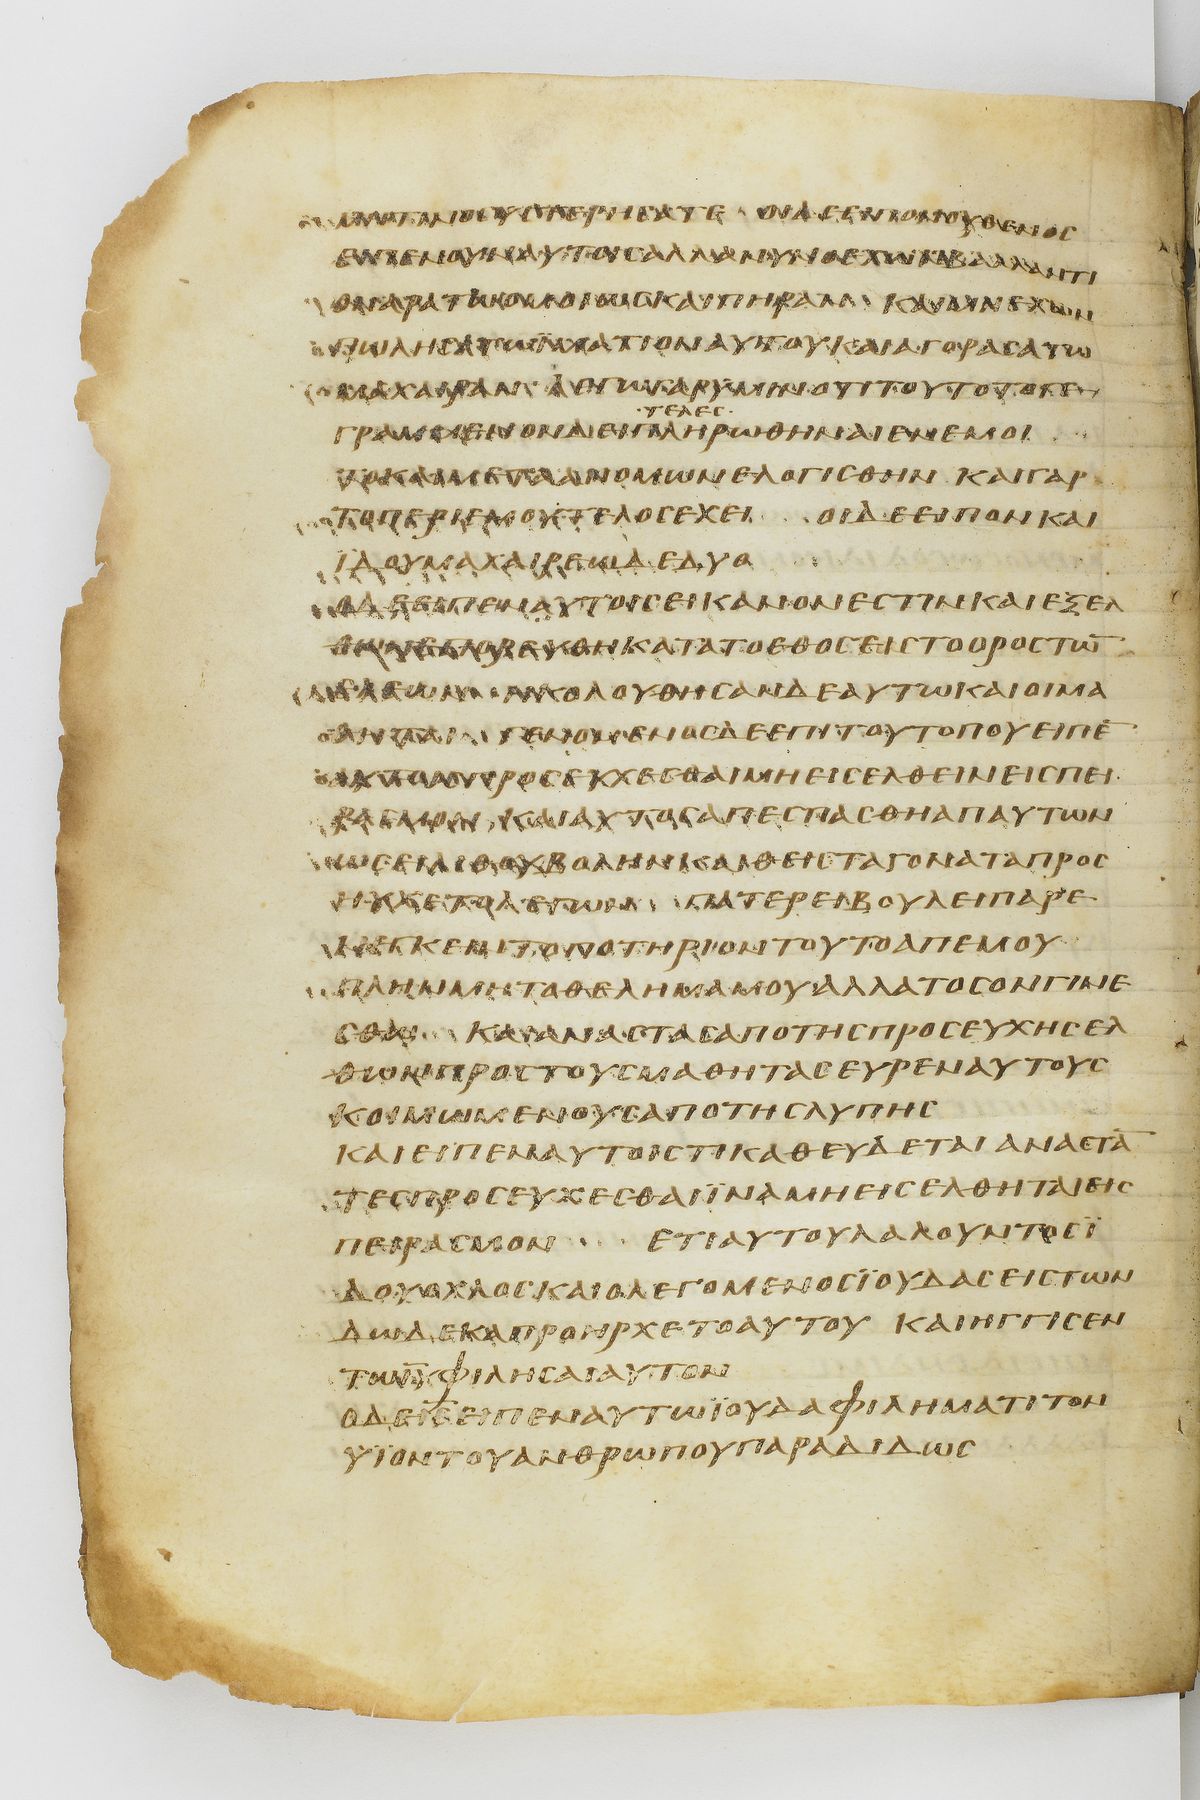 ΥΣΤΕΡΗΣΑΤΕ ΟΙΔΕΕΙΠΟΝΟΥΘΕΝΟΣ
ΕΙΠΕΝΟΥΝΑΥΤΟΙΣΑΛΛΑΝΥΝΟΕΧΩΝΒΑΛΛΑΝΤΙ
ΟΝΑΡΑΤΩΟΜΟΙΩΣΚΑΙΠΗΡΑΝ ΚΑΙΟΜΗΕΧΩΝ
ΠΩΛΗΣΑΤΩΪΜΑΤΙΟΝΑΥΤΟΥΚΑΙΑΓΟΡΑΣΑΤΩ
ΜΑΧΑΙΡΑΝ ΛΕΓΩΓΑΡΥΜΙΝΟΤΙΤΟΥΤΟΤΟΓΕ
·ΤΕΛΕΣ·
ΓΡΑΜΜΕΝΟΝΔΕΙΠΛΗΡΩΘΗΝΑΙΕΝΕΜΟΙ
ΤΟΚΑΙΜΕΤΑΑΝΟΜΩΝΕΛΟΓΙΣΘΗΝ ΚΑΙΓΑΡ
ΤΟΠΕΡΙΕΜΟΥΤΕΛΟΣΕΧΕΙ ΟΙΔΕΕΙΠΟΝΚΑΙ
ΙΔΟΥΜΑΧΑΙΡΕΩΔΕΔΥΟ
ΟΔΕΕΙΠΕΝΑΥΤΟΙΣΕΙΚΑΝΟΝΕΣΤΙΝΚΑΙΕΞΕΛ
ΘΩΝΕΠΟΡΕΥΘΗΚΑΤΑΤΟΕΘΟΣΕΙΣΤΟΟΡΟΣΤΩ̅
ΕΛΑΙΩΝ ΗΚΟΛΟΥΘΗΣΑΝΔΕΑΥΤΩΚΑΙΟΙΜΑ
ΘΗΤΑΙ ΓΕΝΟΜΕΝΟΣΔΕΕΠΙΤΟΥΤΟΠΟΥΕΙΠΕ̅
ΑΥΤΟΙΣΠΡΟΣΕΥΧΕΣΘΑΙΜΗΕΙΣΕΛΘΕΙΝΕΙΣΠΕΙ
ΡΑΣΜΟΝ ΚΑΙΑΥΤΟΣΑΠΕΣΠΑΣΘΗΑΠΑΥΤΩΝ
ΩΣΕΙΛΙΘΟΥΒΟΛΗΝΚΑΙΘΕΙΣΤΑΓΟΝΑΤΑΠΡΟΣ
ΗΥΧΕΤΟΛΕΓΩΝ ΠΑΤΕΡΕΙΒΟΥΛΕΙΠΑΡΕ
ΝΕΓΚΕΙΝΤΟΠΟΤΗΡΙΟΝΤΟΥΤΟΑΠΕΜΟΥ
ΠΛΗΝΜΗΤΟΘΕΛΗΜΑΜΟΥΑΛΛΑΤΟΣΟΝΓΙΝΕ
ΣΘΩ ΚΑΙΑΝΑΣΤΑΣΑΠΟΤΗΣΠΡΟΣΕΥΧΗΣΕΛ
ΘΩΝΠΡΟΣΤΟΥΣΜΑΘΗΤΑΣΕΥΡΕΝΑΥΤΟΥΣ
ΚΟΙΜΩΜΕΝΟΥΣΑΠΟΤΗΣΛΥΠΗΣ
ΚΑΙΕΙΠΕΝΑΥΤΟΙΣΤΙΚΑΘΕΥΔΕΤΑΙΑΝΑΣΤΑ̅
ΤΕΣΠΡΟΣΕΥΧΕΣΘΑΙΪΝΑΜΗΕΙΣΕΛΘΗΤΑΙΕΙΣ
ΠΕΙΡΑΣΜΟΝ ΕΤΙΑΥΤΟΥΛΑΛΟΥΝΤΟΣΪ
ΔΟΥΟΧΛΟΣΚΑΙΟΛΕΓΟΜΕΝΟΣΪΟΥΔΑΣΕΙΣΤΩΝ
ΔΩΔΕΚΑΠΡΟΗΡΧΕΤΟΑΥΤΟΥ ΚΑΙΗΓΓΙΣΕΝ
ΤΩΙ̅Υ̅ΦΙΛΗΣΑΙΑΥΤΟΝ
ΟΔΕΙ̅Σ̅ΕΙΠΕΝΑΥΤΩΪΟΥΔΑΦΙΛΗΜΑΤΙΤΟΝ
ΥΪΟΝΤΟΥΑΝΘΡΩΠΟΥΠΑΡΑΔΙΔΩΣ